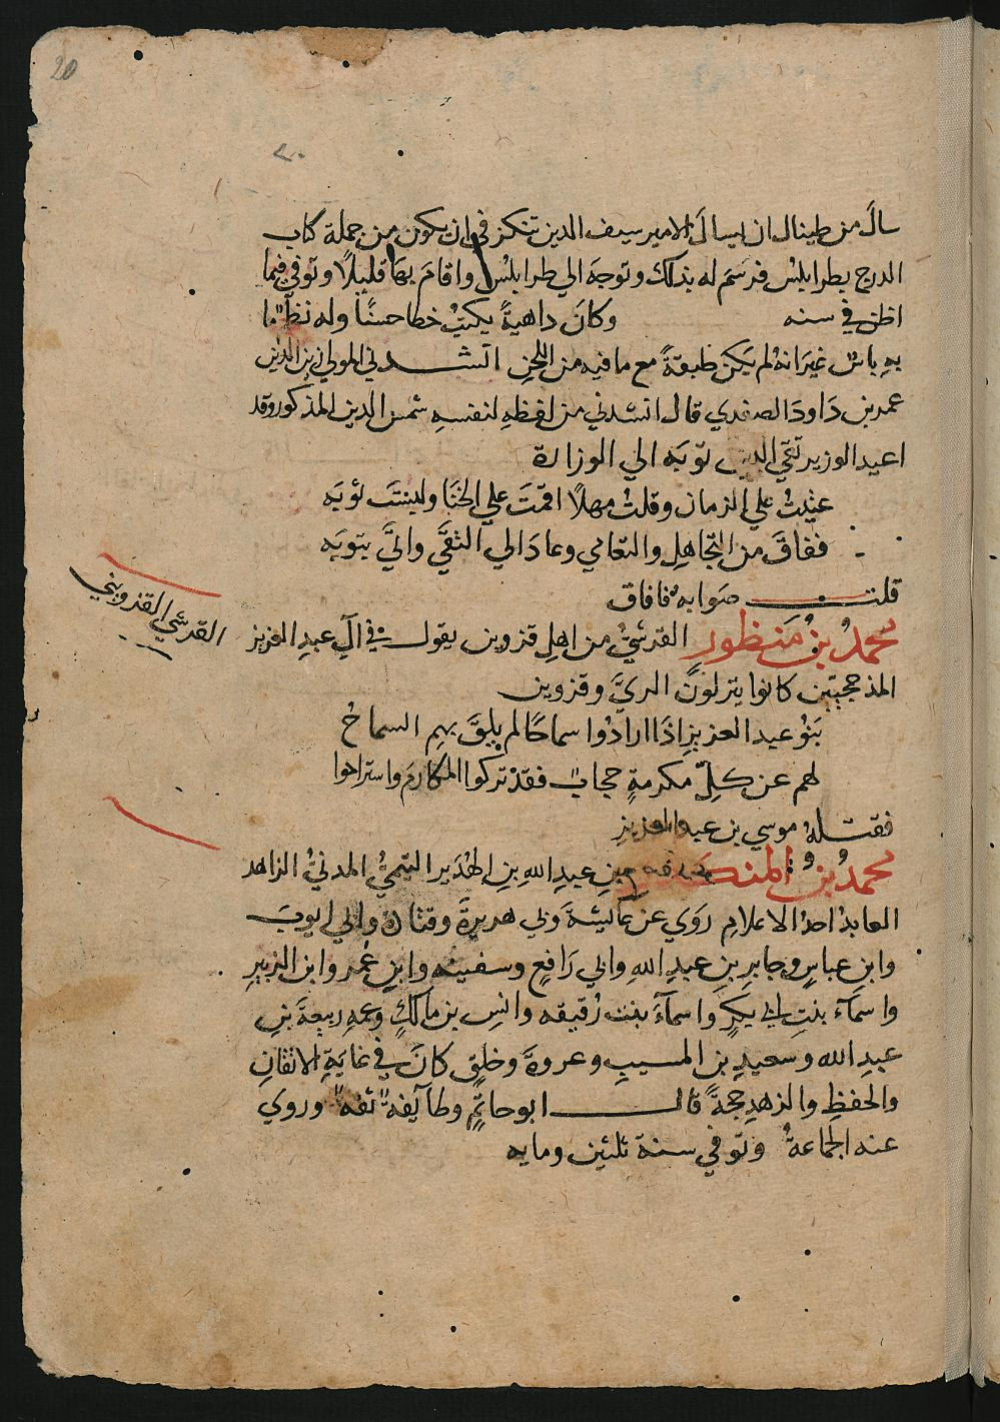 20
٢٠
سال من طينال ان يسال الامير سيف الدين تنكز في ان يكون من جملة كتاب
الدرج بطرابلس فرسم له بذلك وتوجه الي طرابلس واقام بها قليلًا وتوفي فيما
اظن في سنه وكان داهيةً يكتبُ خطا حسنًا وله نظمٌ ما
به باسٌ غير انه لم يكن طبقةً مع ما فيه من اللحن انشدني المولي زين الدين
عمر بن داود الصفدي قال انشدني من لفظهِ لنفسهِ شمس الدين المذكور وقد
اعيد الوزير تقي الدين توبه الي الوزارة
عتبتُ علي الزمان وقلتُ مهلًا اقمتَ علي الخنا ولبستَ ثوبَه
ففاقَ من التجاهلِ والتعامي وعادَ الي التقَّي واليَّ بتوبَه
قلت صوابه فافاق
محمدُ بنُ مَنظورٍ القرشيُّ من اهلِ قزوين يقول في آلِ عبدِ العزيز
القرشي القزويني
المذحجيّين كانوا ينزلونَ الريَّ وقزوين
بَنُو عبد العزيزِ اذا ارادُوا سماحًا لم يلقَ بهمِ السماحُ
لهم عن كلِّ مكرمةٍ حجابٌ فقدْ تركوا المكارمَ واستراحوا
فقتلهُ موسي بن عبد العزيزِ
محمدُ بنُ المنكدر بن عبدِ اللهِ بنِ الهُدَيرِ التيميُّ المدنيُّ الزاهد
العابدُ احدُ الاعلامِ رَوَي عن عايشةَ وابي هريرةَ وقتادة وابي ايوبَ
وابنِ عباسٍ وجابرِ بنِ عبدِ اللهِ وابي رافعٍ وسفينه وابنِ عُمر وابن الزبيرِ
واسمآء بنتِ ابي بكرٍ واسمآءَ بنت رُقيقه وانسِ بن مالكٍ وعمهِ ربيعةَ بنِ
عبدِ الله وسعيدِ بن المسيبِ وعروةَ وخلقٍ كانَ في غايةِ الاتقانِ
والحفظِ والزهدِ حجةً قال ابو حاتمٍ وطآيفةٌ ثقهٌ وروي
عنه الجماعةُ وتوفي سنة ثلثين ومايه